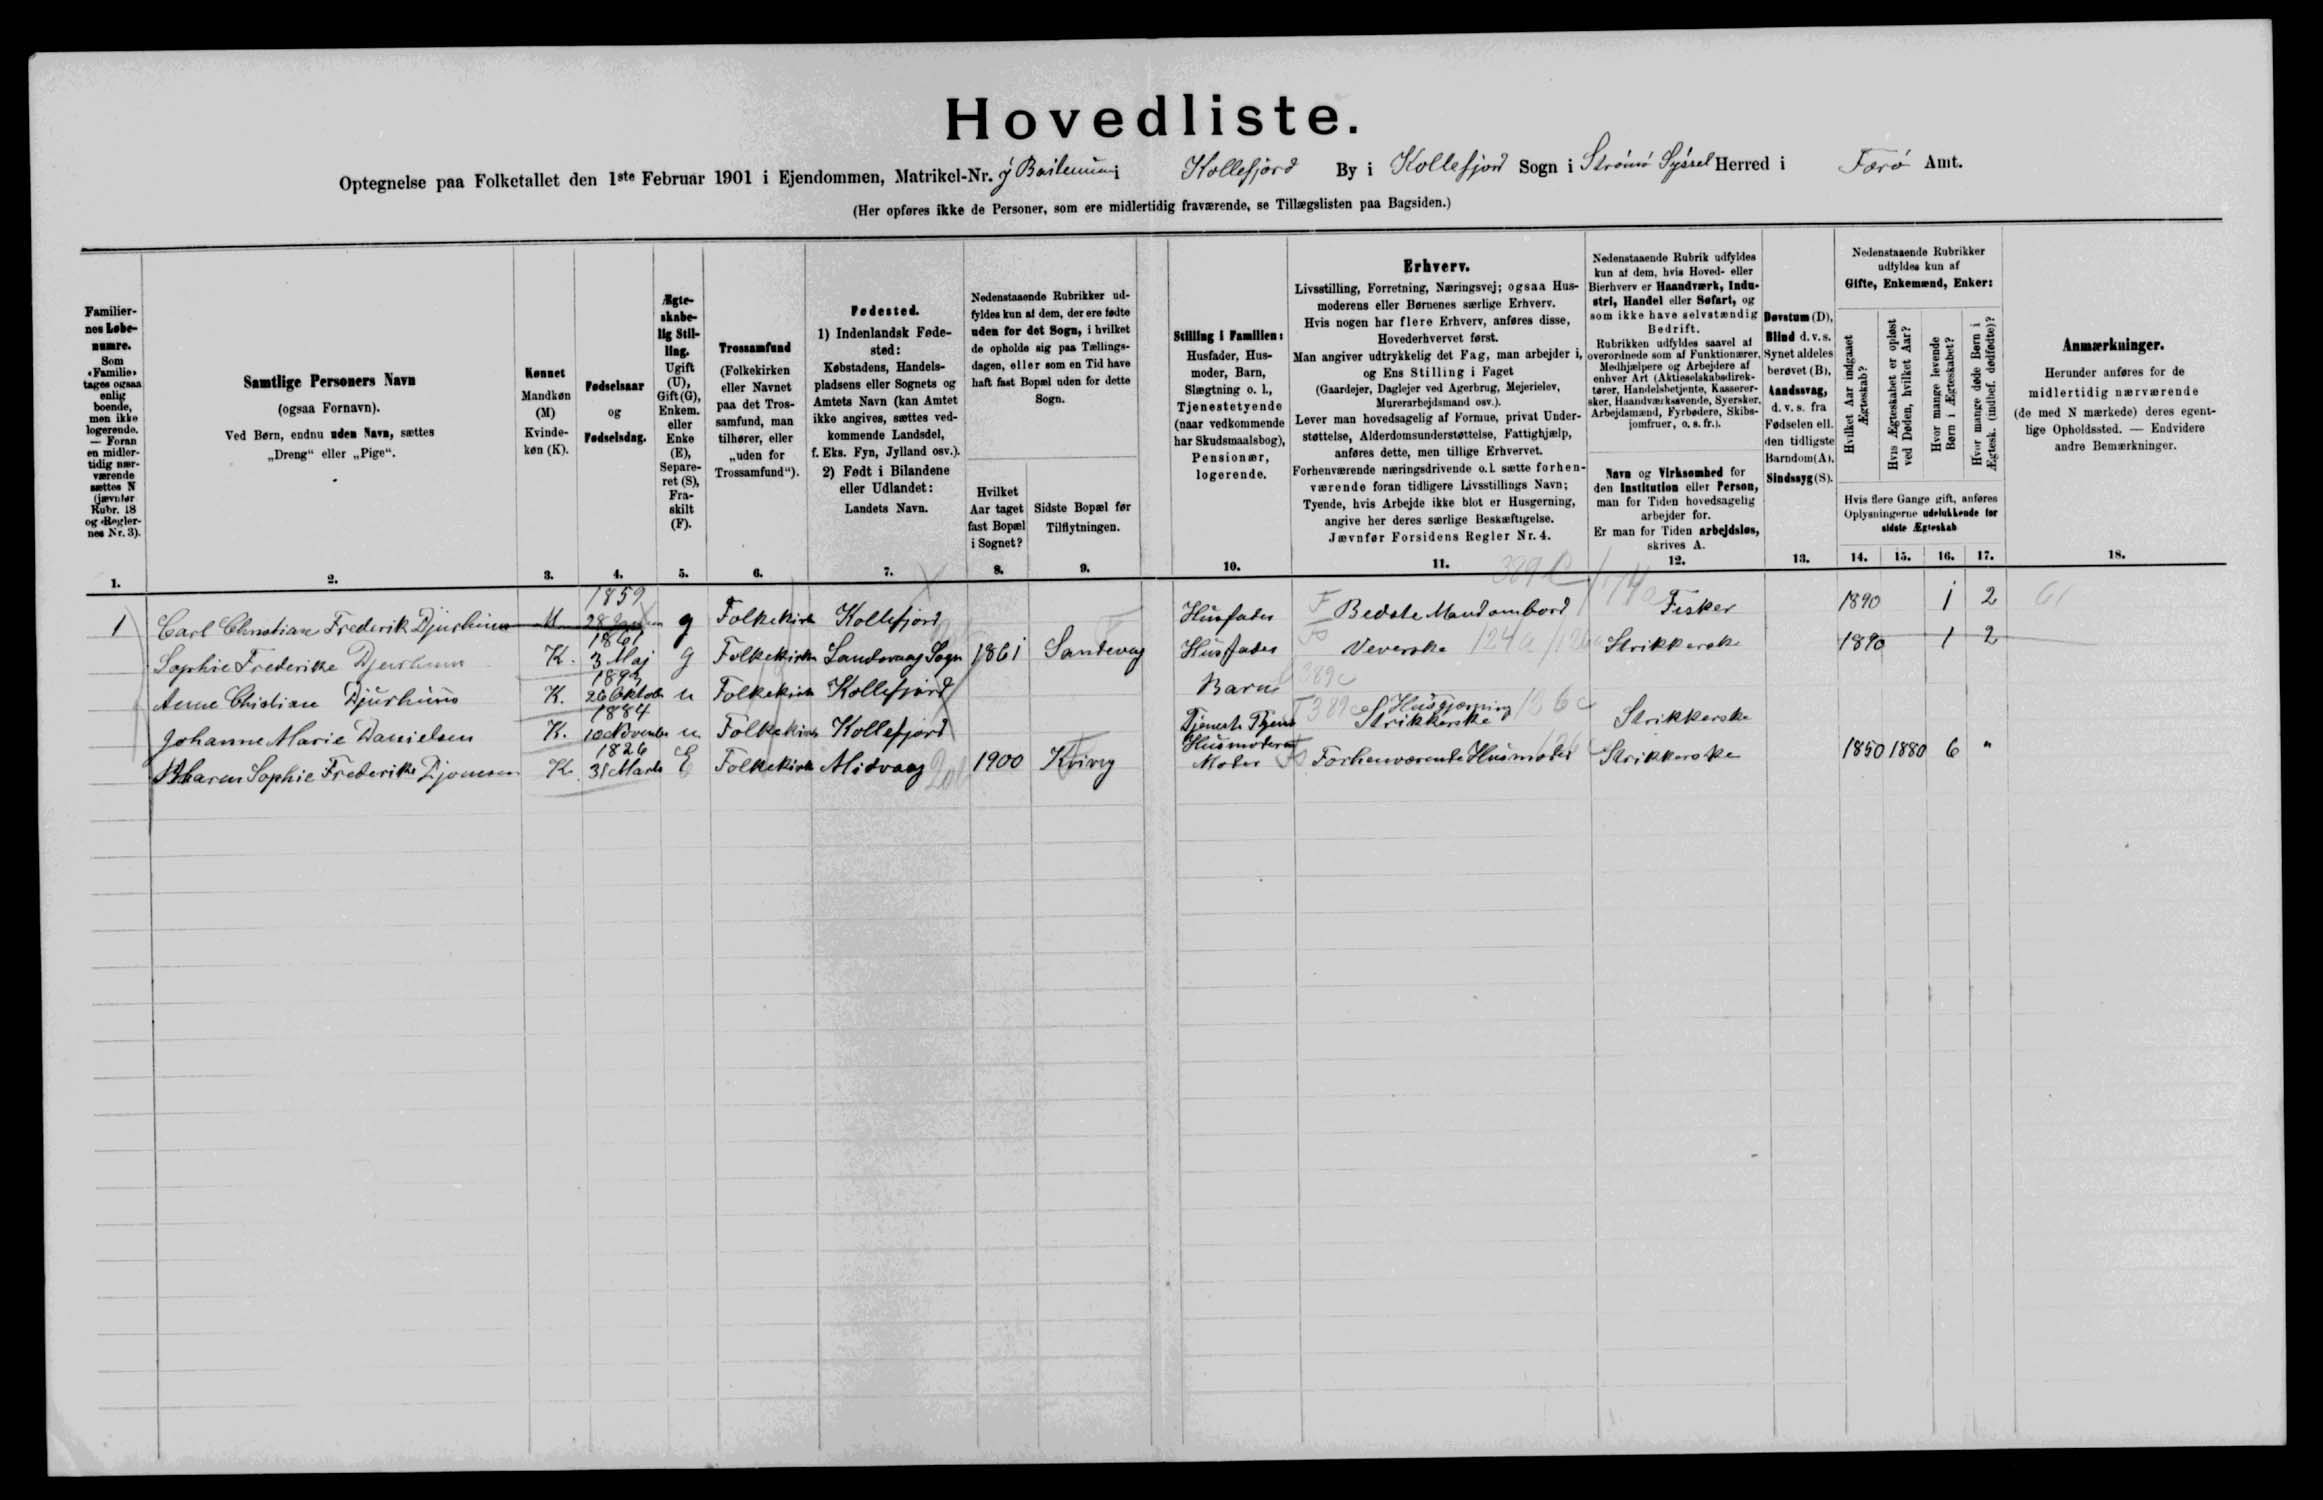 Hovedliste.
Optegnelse paa Folketallet den 1ste Februar 1901 i Ejendommen, Matrikel-Nr. i Kollefjord By i Kollefjord Sogn i Strömö Syssel Herred i Færö Amt.
(Her opføres ikke de Personer, som ere midlertidig fraværende, se Tillægslisten paa Bagsiden.)
Familier-
nes Løbe-
numre.
Som
«Familie»
tages ogsaa
enlig
boende,
men ikke
logerende.
— Foran
en midler-
tidig nær-
værende
sættes N
(jævnfør
Rubr. 18
og «Regler-
nes Nr. 3).
1.
Samtlige Personers Navn
(ogsaa Fornavn).
Ved Børn, endnu uden Navn, sættes
„Dreng“ eller „Pige“.
2.
Kønnet
Mandkøn
(M)
Kvinde-
køn (K).
3.
Fødselsaar
og
Fødselsdag.
4.
Ægte-
skabe-
lig Stil-
ling.
Ugift
(U),
Gift (G),
Enkem.
eller
Enke
(E),
Separe-
ret (S),
Fra-
skilt
(F).
5.
Trossamfund
(Folkekirken
eller Navnet
paa det Tros-
samfund, man
tilhører, eller
„uden for
Trossamfund“).
6.
Fødested.
1) Indenlandsk Føde-
sted:
Købstadens, Handels-
pladsens eller Sognets og
Amtets Navn (kan Amtet
ikke angives, sættes ved-
kommende Landsdel,
f. Eks. Fyn, Jylland osv.).
2) Født i Bilandene
eller Udlandet:
Landets Navn.
7.
Nedenstaaende Rubrikker ud-
fyldes kun af dem, der ere fødte
uden for det Sogn, i hvilket
de opholde sig paa Tællings-
dagen, eller som en Tid have
haft fast Bopæl uden for dette
Sogn.
Hvilket
Aar taget
fast Bopæl
i Sognet?
8.
Sidste Bopæl før
Tilflytningen.
9.
Stilling i Familien:
Husfader, Hus-
moder, Barn,
Slægtning o. l.,
Tjenestetyende
(naar vedkommende
har Skudsmaalsbog),
Pensionær,
logerende.
10.
Erhverv.
Livsstilling, Forretning, Næringsvej; ogsaa Hus-
moderens eller Børnenes særlige Erhverv.
Hvis nogen har flere Erhverv, anføres disse,
Hovederhvervet først.
Man angiver udtrykkelig det Fag, man arbejder i,
og Ens Stilling i Faget
(Gaardejer, Daglejer ved Agerbrug, Mejerielev,
Murerarbejdsmand osv.).
Lever man hovedsagelig af Formue, privat Under-
støttelse, Alderdomsunderstøttelse, Fattighjælp,
anføres dette, men tillige Erhvervet.
Forhenværende næringsdrivende o.l. sætte forhen-
værende foran tidligere Livsstillings Navn;
Tyende, hvis Arbejde ikke blot er Husgerning,
angive her deres særlige Beskæftigelse.
Jævnfør Forsidens Regler Nr. 4.
11.
Nedenstaaende Rubrik udfyldes
kun af dem, hvis Hoved- eller
Bierhverv er Haandværk, Indu-
stri, Handel eller Søfart, og
som ikke have selvstændig
Bedrift.
Rubrikken udfyldes saavel af
overordnede som af Funktionærer,
Medhjælpere og Arbejdere af
enhver Art (Aktieselskabsdirek-
tører, Handelsbetjente, Kasserer-
sker, Haandværkssvende, Syersker,
Arbejdsmænd, Fyrbødere, Skibs-
jomfruer, o. s. fr.).
Navn og Virksomhed for
den Institution eller Person,
man for Tiden hovedsagelig
arbejder for.
Er man for Tiden arbejdsløs,
skrives A.
12.
Døvstum (D),
Blind d. v. s.
Synet aldeles
berøvet (B),
Aandssvag,
d. v. s. fra
Fødselen ell.
den tidligste
Barndom (A),
Sindssyg (S).
13.
Nedenstaaende Rubrikker
udfyldes kun af
Gifte, Enkemænd, Enker:
Hvilket Aar indgaaet
Ægteskab?
Hvis Ægteskabet er opløst
ved Døden, hvilket Aar?
Hvor mange levende
Børn i Ægteskabet?
Hvor mange døde Børn i
Ægtesk. (indbef. dødfødte)?
Hvis flere Gange gift, anføres
Oplysningerne udelukkende for
sidste Ægteskab
14. 15. 16. 17.
Anmærkninger.
Herunder anføres for de
midlertidig nærværende
(de med N mærkede) deres egent-
lige Opholdssted. — Endvidere
andre Bemærkninger.
18.
389 C
1859
1 Carl Christian Frederik Djurhuus M 28 g Folkekirk Kollefjord Husfader F Bedste Mand ombord Fisker 1890 1 2 61
1861
Sophie Frederikke Djurhuus K. 3 Maj g Folkekirken Sandevaag Sogn 1861 Sandevag Husfader Veverske 124a Strikkersk 1890 1 2
Anne Christiane Djurhuus K. 26 Oktob u Folkekirk Kollefjord Barn 389c
1884
Johanne Marie Danielsen K. 10 Novemb u Folkekirk Kollefjord Tjeneste Husgjerning Strikkerske Strikkerske
1826
Maren Sophie Frederikke Djonesen K. 31 Marts E Folkekirk Midvaag 1900 Kvivig Husmoderens Moder Forhenværende Husmoder Strikkerske 1850 1880 6 "